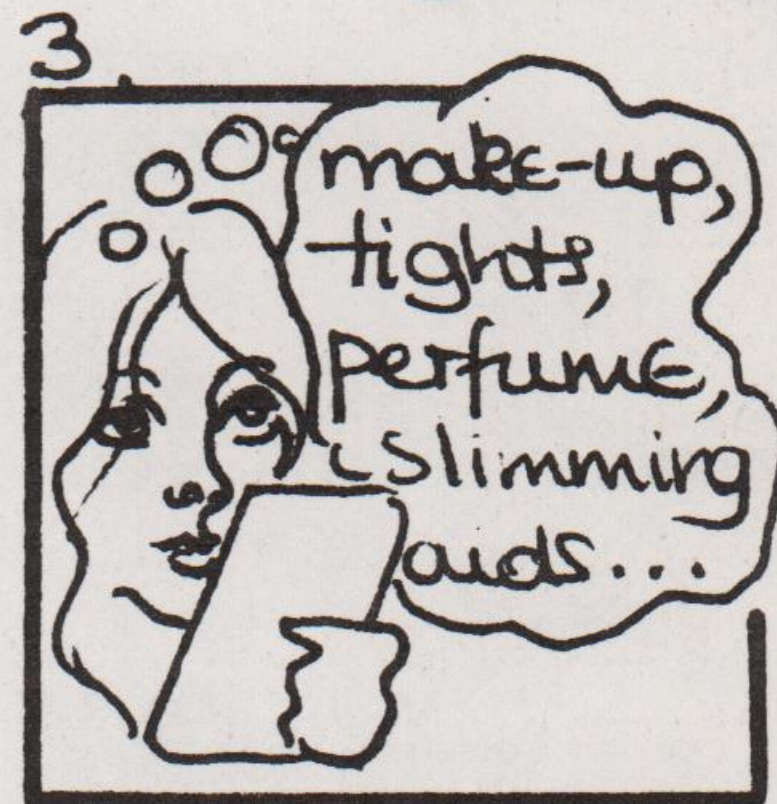 3.
make-up,
tights,
perfume,
slimming
aids...